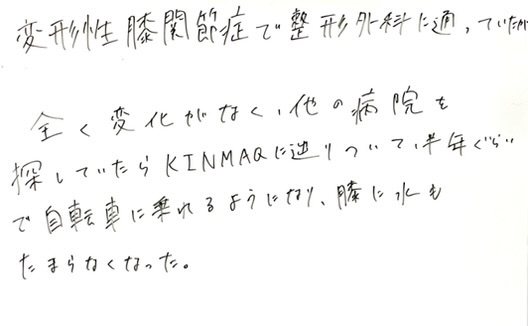 変形性膝関節症で整形外科に通っていたが
全く変化がなく、他の病院を
探していたらKINMAQに辿りついて、半年ぐらい
で自転車に乗れるようになり、膝に水も
たまらなくなった。